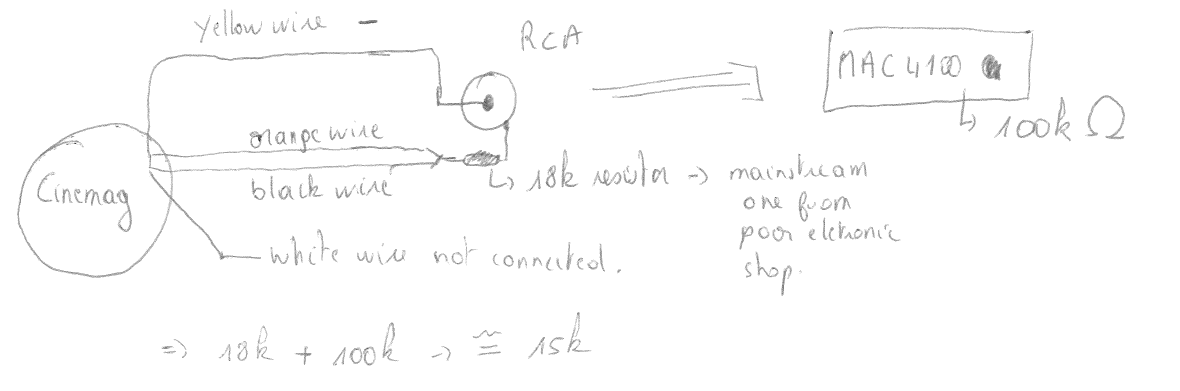 Yellow wire -
RCA
MAC 4100
100k Ω
orange wire
black wire
Cinemag
↳ 18k resistor → mainstream
one from
poor elctronic
shop.
white wire not connected.
⇒ 18k + 100k → ≅ 15k